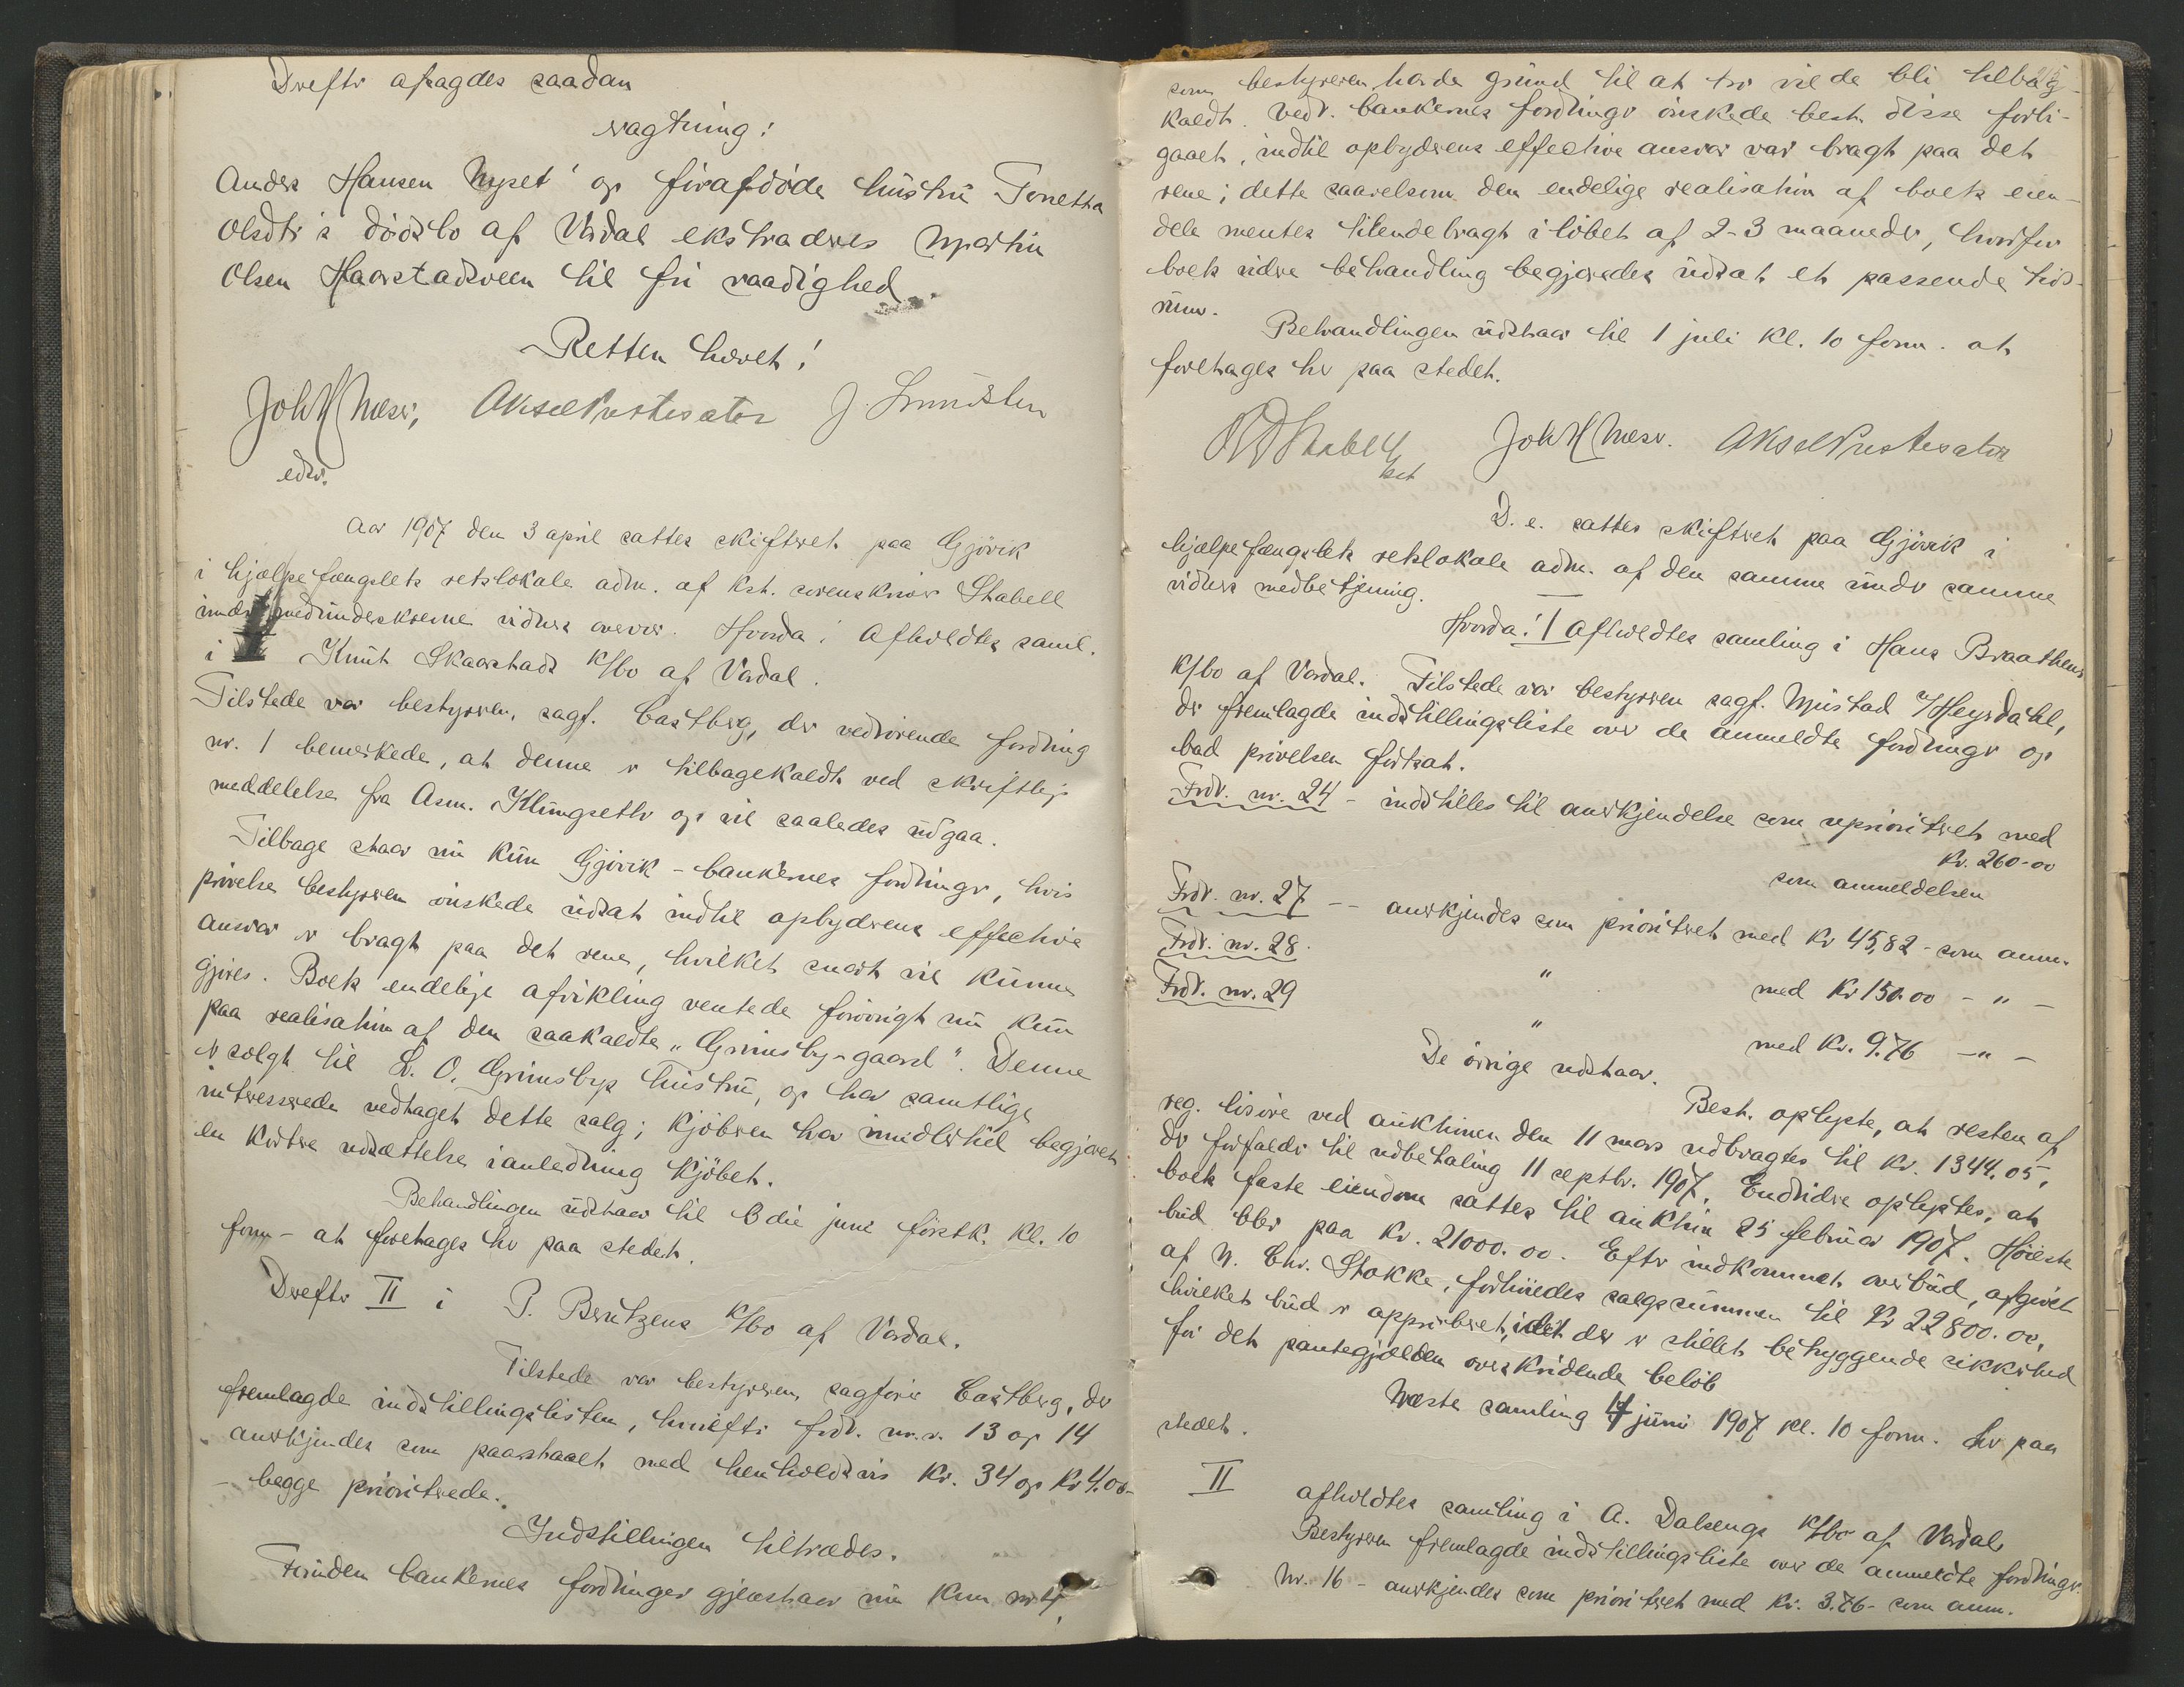 Derefter afsagdes saadan
vagtning!
Anders Hansen Nyset' og førafdøde hustru Tonetha
Olsdtr's dødsbo af Vardal ekstraderes Martin
Olsen Haarstadsveen til fri raadighed.
Retten hævet!
Joh H Næser, Aksel Prestesæter J. Smidslun
edsv.
Aar 1907 den 3 april sattes skifteret paa Gjøvik
i hjælpefængslets retslokale adm. af kst. sorenskriver Stabell
under medunderskrevne vidners overvær. Hvorda: Afholdtes saml.
i I Knut Skaarstads K/bo af Vardal.
Tilstede var bestyreren, sagf. Castberg, der vedrørende fordring
nr. 1 bemerkede, at denne er tilbagekaldt ved skriftlig
meddelelse fra Asm. Klungsetr og vil saaledes udgaa.
Tilbage staar nu kun Gjøvik-bankernes fordringer, hvis
prøvelse bestyreren ønskede udsat indtil opbyderens effective
ansvar er bragt paa det rene, hvilket snart vil kunne
gjøres. Boets endelige afvikling ventede forøvrigt nu kun
paa realisation af den saakaldte "Grimsby-gaard". Denne
er solgt til L. O. Grimsbys hustru, og har samtlige
interesserede vedtaget dette salg; kjøberen har imidlertid begjæret
en kortere udsættelse i anledning kjøbet.
Behandlingen udstaar til 3die juni førstk. kl. 10
form - at foretages her paa stedet.
Derefter II i P. Berntzens K/bo af Vardal.
Tilstede var bestyreren, sagfører Castberg, der
fremlagde indstillingslisten, hvorefter fordr. nr.r. 13 og 14
anerkjendes som paastaaet med henholdsvis kr. 34 og kr 4.00-
- begge prioriterede.
Indstillingen tiltrædes.
Foruden bankernes fordringer gjenstaar nu kun nr. 4,
som bestyreren havde grund til at tro vilde bli tilbag-
kaldt. Vedr. bankernes fordringer ønskede best. disse forbi-
gaaet, indtil opbyderens effective ansvar var bragt paa det
rene; dette saavelsom den endelige realisation af boets eien-
dele mentes tilendebragt i løbet af 2-3 maaneder, hvorfor
boets videre behandling begjæredes udsat et passende tids-
rum.
Behandlingen udstaar til 1 juli kl. 10 form. at
foretages her paa stedet.
Stabell kst Joh H Næser. Aksel Prestesæter
D. e. sattes skifteret paa Gjøvik i
hjælpefængslets retslokale adm. af den samme under samme
vidners medbetjening.
Hvorda: I afholdtes samling i Hans Braathens
K/bo af Vardal. Tilstede var bestyreren sagf. Mustad v/Heyerdahl,
der fremlagde indstillingsliste over de anmeldte fordringer og
bad prøvelsen fortsat.
Fordr. nr. 24 - indstilles til anerkjendelse som uprioriteret med
kr. 260-00
som anmeldelsen
Fordr. nr. 27 -- anerkjendes som prioriteret med kr 45,82 - som anm.
Fordr. nr. 28. " med kr 150.00 - " -
Fordr. nr. 29 " med kr. 9.76 - " -
De øvrige udstaar.
Best. oplyste, at resten af
reg. løsøre ved auktionen den 11 mars udbragtes til kr. 1344.05,
der forfalder til udbetaling 11 septbr. 1907. Endvidere oplystes, at
boets faste eiendom sattes til auktion 25 februar 1907. Høieste
bud blev paa kr. 21000.00. Efter indkommet overbud, afgivet
af N. Chr. Stokke, forhøiedes salgssummen til kr 22800.00,
hvilket bud er approberet, idet der er stillet betryggende sikkerhed
for det pantegjælden overskridende beløb
Næste samling 14 juni 1907 kl. 10 form. her paa
stedet.
II afholdtes samling i A. Dalsengs K/bo af Vardal
Bestyreren fremlagde indstillingsliste over de anmeldte fordringer.
Nr. 16 - anerkjendes som prioriteret med kr. 3.76 - som anm.